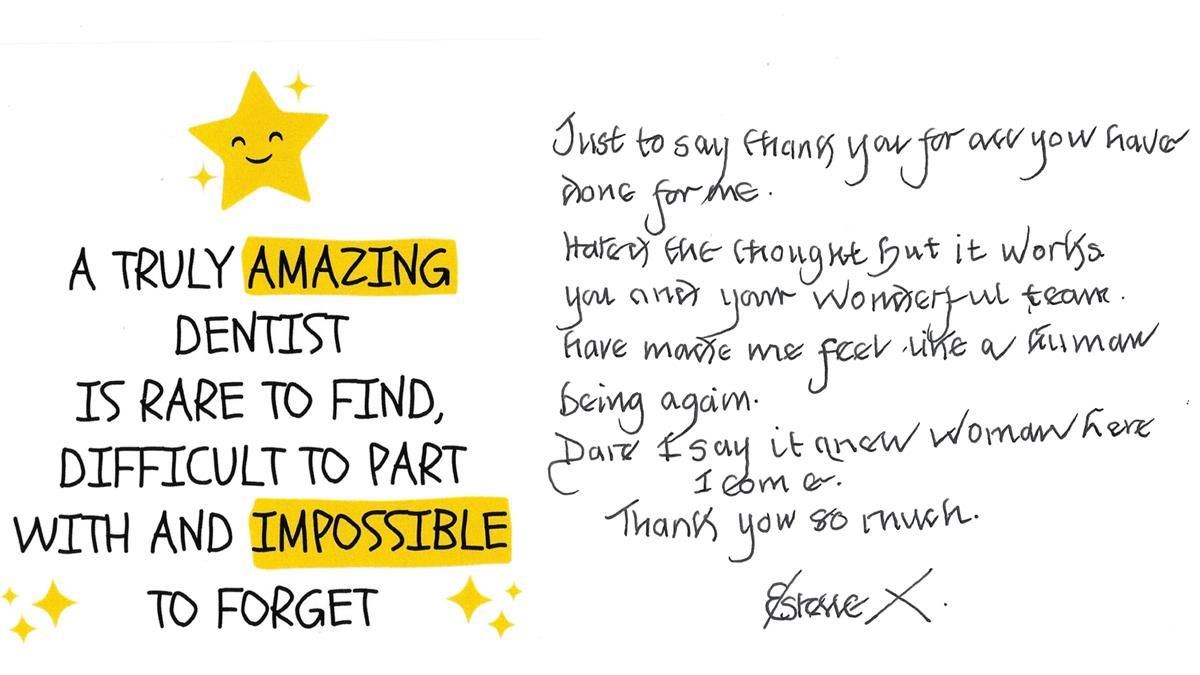 A TRULY AMAZING
DENTIST
IS RARE TO FIND,
DIFFICULT TO PART
WITH AND IMPOSSIBLE
TO FORGET
Just to say thank you for all you have
done for me.
Hated the thought But it works
you and your wonderful team.
have made me feel like a human
being again.
Dare I say it a new woman here
I come.
Thank you so much.
X.